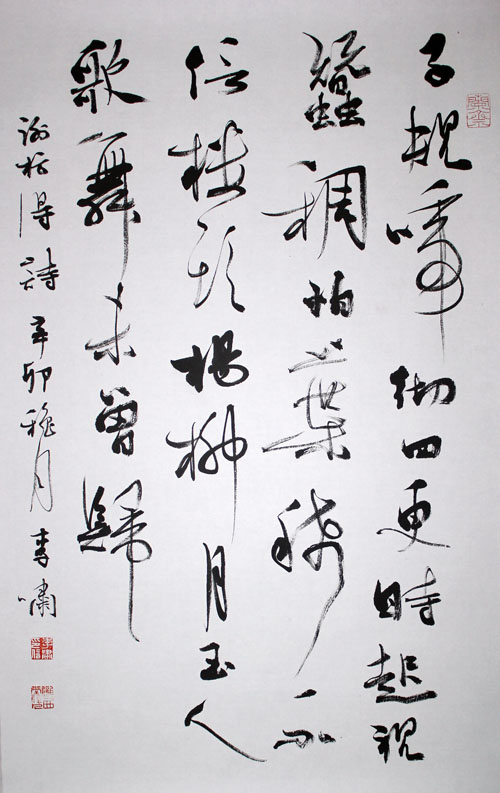 子規啼彻四更時起視
蠶稠怕葉稀不
信樓頭楊柳月玉人
歌舞未曾歸
謝枋得詩辛卯月李嘯